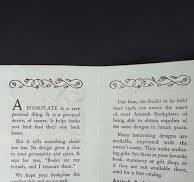 A BOOKPLATE is a very
personal thing. It is a practical
device, of course. It helps books
you lend find their way back
home.
But it tells something about
you too. Its design gives a clue
to your personality and spirit. It
says for you, "Books are my
friends, and I treasure them."
We hope your bookplate fits
Our firm, the leader in its field
since 1926, can assure the users
of most Antioch Bookplates of
being able to obtain supplies of
the same designs in future years.
Many interesting designs are
available, imprinted with the
owner's name. They make
if they are not available there,
send for a free catalog.